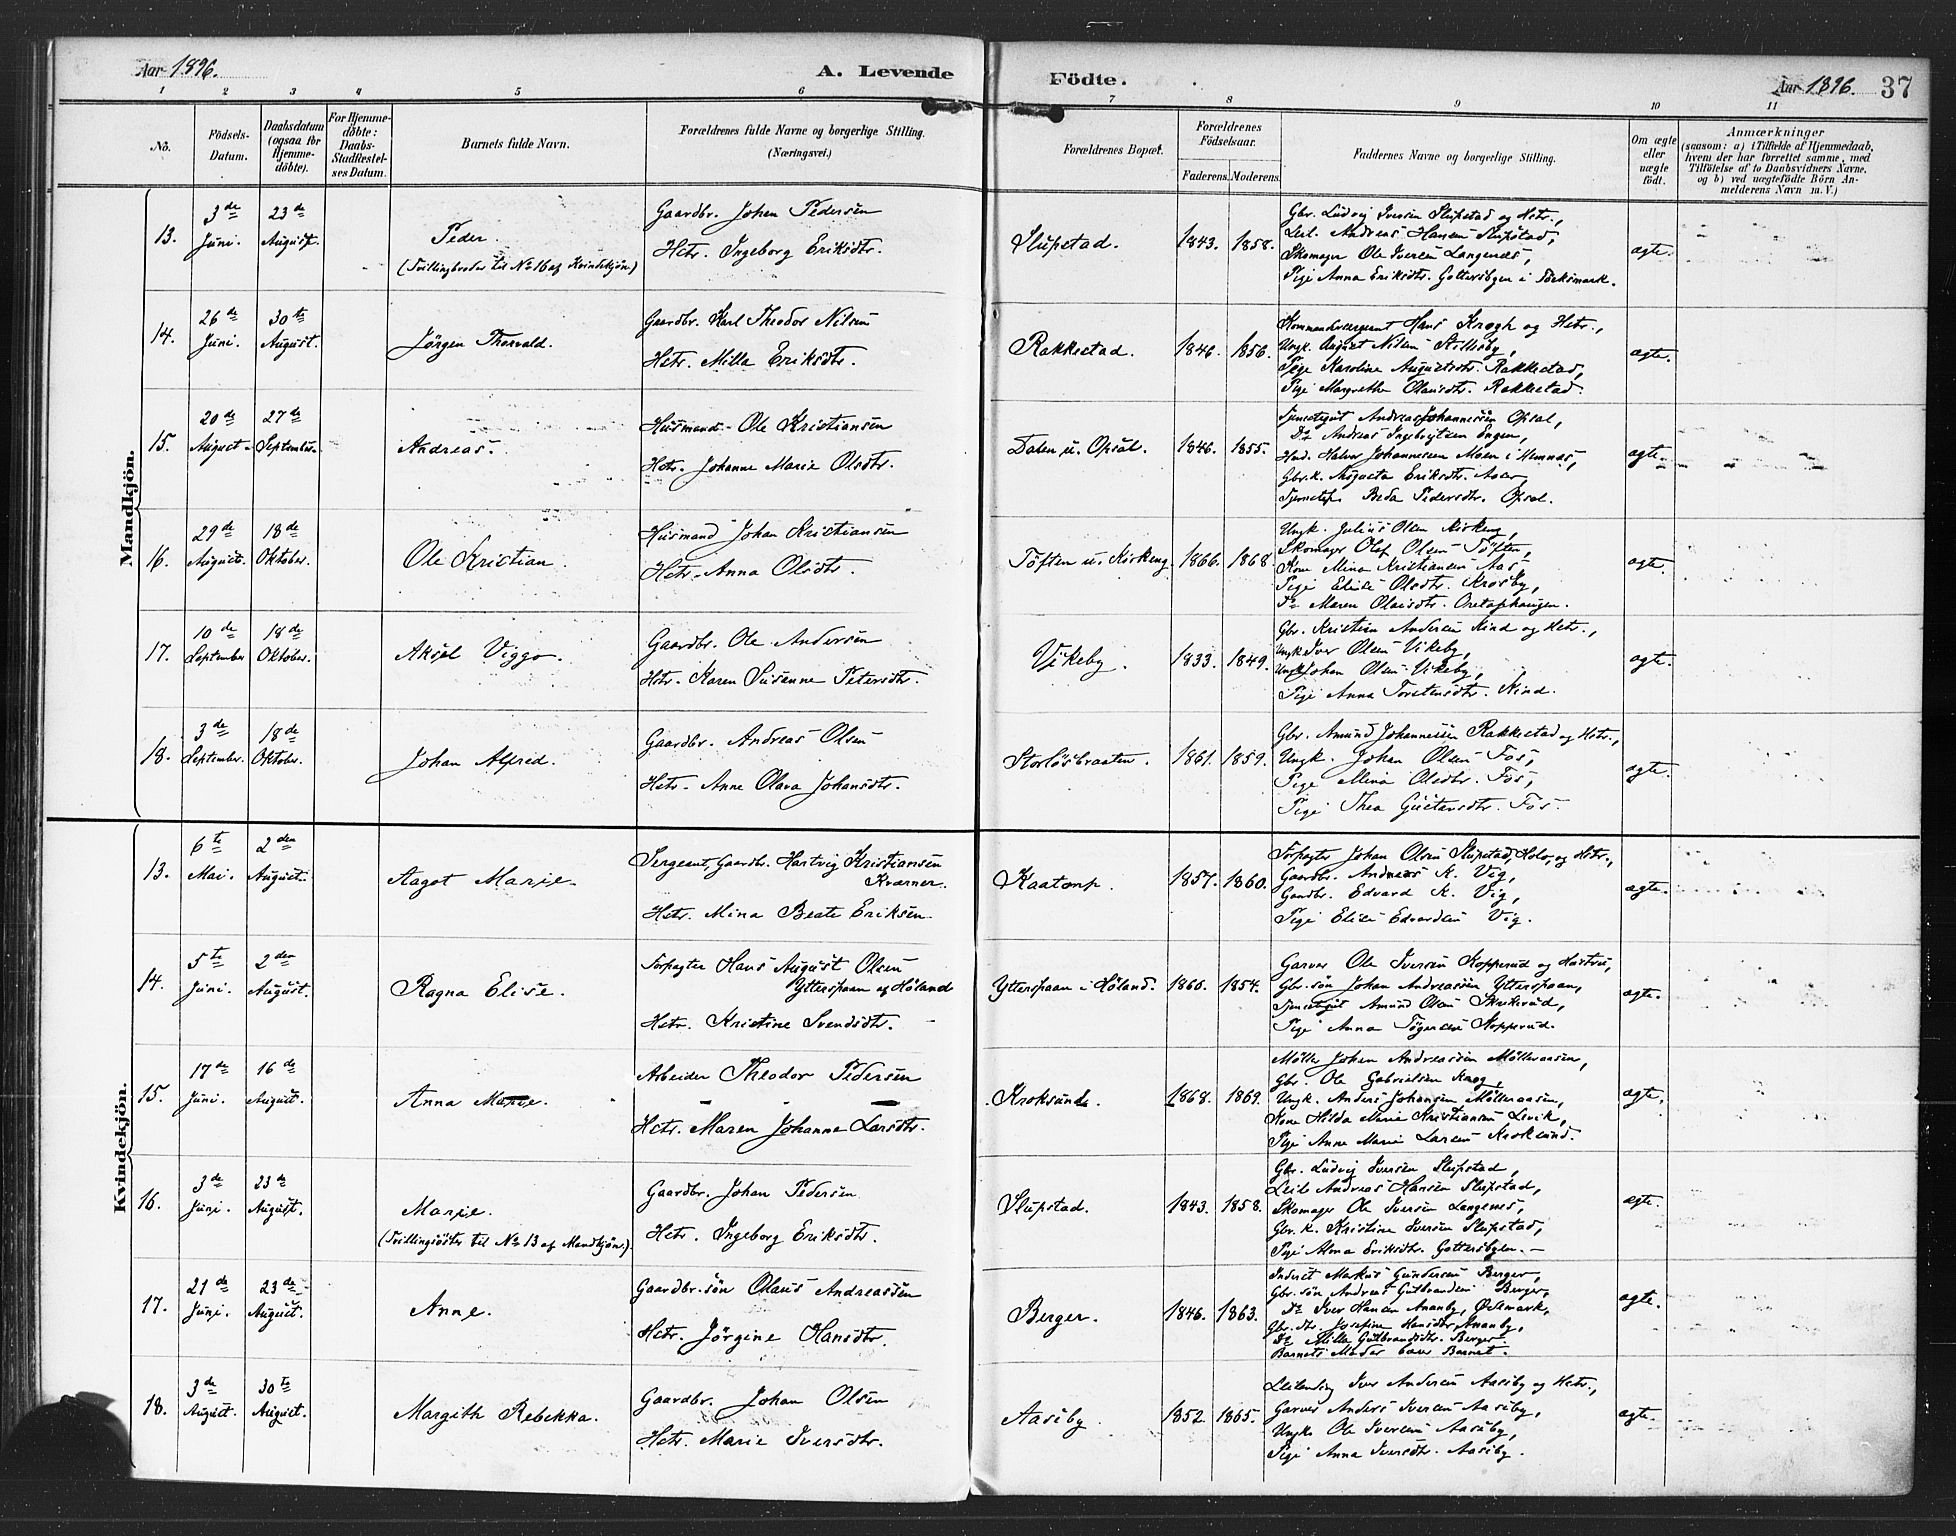 Aar 1896.
A. Levende
Födte.
Aar 1896.
37
1 2 3 4 5 6 7 8 9 10 11
No.
Födsels-
Datum.
Daabsdatum
(ogsaa for
Hjemme-
döbte).
For Hjemme-
döbte:
Daabs-
Stadfæstel-
ses Datum.
Barnets fulde Navn.
Forældrenes fulde Navne og borgerlige Stilling.
(Næringsvei.)
Forældrenes Bopæl.
Forældrenes
Födselsaar.
Faderens. Moderens.
Faddernes Navne og borgerlige Stilling.
Om ægte
eller
uægte
födt.
Anmærkninger
(saasom: a) i Tilfælde af Hjemmedaab,
hvem der har forrettet samme, med
Tilföielse af to Daabsvidners Navne,
og b) ved uægtefödte Börn An-
melderens Navn m. V.)
Mandkjön.
13.
3de
Juni.
23de
August.
Peder.
(Tvillingbroder til No 16 af Kvindekjön.)
Gaardbr. Johan Pedersen
Hstr. Ingeborg Eriksdtr.
Slupstad.
1843. 1858.
Gbr. Ludvig Iversen Slupstad og Hstr.,
Leil. Andreas Hansen Slupstad,
Skomager Ole Iversen Langenes,
Pige Anna Eriksdtr. Gottersbyen i
ægte.
14.
26de
Juni.
30te
August.
Jörgen Thorvald.
Gaardbr. Karl Theodor Nilsen
Hstr. Milla Eriksdtr.
Rakkestad.
1846. 1856.
Kommandersergeant Hans Krogh og Hstr.,
Ungk. August Nilsen
Pige Karoline Augustsdtr. Rakkestad,
Pige Margrethe Olausdtr. Rakkestad.
ægte.
15.
20de
August.
27de
September.
Andreas.
Husmand Ole Kristiansen
Hstr. Johanne Marie Olsdtr.
Dalen u. Opsal.
1846. 1855.
Tjenestegut Andreas Johannessen Opsal,
Do Andreas Ingebrigtsen Engen,
Hmd. Halvor Johannessen Moen i Hemnæs,
Gbr.k. Augusta Eriksdtr.
Tjenestep. Beda Pedersdtr. Opsal.
ægte.
16.
29de
August.
18de
Oktober.
Ole Kristian.
Husmand Johan Kristiansen
Hstr. Anna Olsdtr.
Töften u. Kirkeng.
1866. 1868.
Ungk. Julius Olsen Kirkeng,
Skomager Olof Olsen Töften,
Kone Mina Kristiansen Aas,
Pige Elise Olsdtr. Krosby,
Do Maren Olausdtr.
ægte.
17.
10de
September
18de
Oktober.
Aksel Viggo.
Gaardbr. Ole Andersen
Hstr. Karen Susanne Petersdtr.
Vikeby.
1833. 1849.
Gbr. Kristian Andersen Kind og Hstr.,
Ungk. Iver Olsen Vikeby,
Ungk. Johan Olsen Vikeby,
Pige Anna Torstensdtr. Kind.
ægte.
18.
3de
September.
18de
Oktober.
Johan Alfred.
Gaardbr. Andreas Olsen
Hstr. Anne Olava Johansdtr.
Storlösbraaten.
1861. 1859.
Gbr. Amund Johannessen Rakkestad og Hstr.,
Ungk. Johan Olsen Fos,
Pige Mina Olsdtr. Fos,
Pige Thea Gustavsdtr. Fos.
ægte.
Kvindekjön.
13.
6te
Mai.
2den
August.
Aagot Marie.
Sergeant, Gaardbr. Hartvig Kristiansen
Kværner.
Hstr. Mina Beate Eriksen.
Kaatorp.
1857. 1860.
Forpagter Johan Olsen Slupstad, Holo, og Hstr.,
Gaardbr. Andreas K. Vig,
Gaardbr. Edvard K. Vig,
Pige Elise Edvardsen Vig.
ægte.
14.
5te
Juni.
2den
August.
Ragna Elise.
Forpagter Hans August Olsen
Ytterspaan af Höland
Hstr. Kristine Svendsdtr.
Ytterspaan i Höland.
1860. 1854.
Garver Ole Iversen Kopperud og Hustru,
Gbr.sön Johan Andreassen Ytterspaan,
Tjenestegut Amund Olsen
Pige Anna Kopperud.
ægte.
15.
17de
Juni.
16de
August.
Anna Marie.
Arbeider Theodor Pedersen
Hstr. Maren Johanne Larsdtr.
Kroksund.
1868. 1869.
Möller Johan Andreassen Mölleraasen,
Gbr. Ole Gabrielsen Krog,
Ungk. Anders Johansen Mölleraasen,
Kone Hilda Marie Kristiansen Levik,
Pige Anne Marie Larsen Kroksund.
ægte.
16.
3de
Juni.
23de
August.
Marie.
(Tvillingsöster til No 13 af Mandkjön.)
Gaardbr. Johan Pedersen
Hstr. Ingeborg Eriksdtr.
Slupstad.
1843. 1858.
Gbr. Ludvig Iversen Slupstad,
Leil. Andreas Hansen Slupstad,
Skomager Ole Iversen Langenes,
Gbr. k. Kristine Iversen Slupstad,
Pige Anna Eriksdtr. Gottersbyen.
ægte.
17.
21de
Juni.
23de
August.
Anne.
Gaardbr.sön Olaus Andreassen
Hstr. Jörgine Hansdtr.
Berger.
1846. 1863.
Inderst Markus Gundersen Berger,
Gbr.sön Andreas Gulbrandsen Berger,
Do Iver Hansen Ananby, Ödemark,
Gbr.dtr. Josefine Hansdtr. Ananby,
Do Milla Gulbrandsdtr. Berger.
Barnets Moder baar Barnet.
ægte.
18.
3de
August.
30te
August.
Margith Rebekka.
Gaardbr. Johan Olsen
Hstr. Marie Iversdtr.
Aaseby.
1852. 1865.
Leilending Iver Andersen Aaseby og Hstr.,
Garver Anders Iversen Aaseby,
Ungk. Ole Iversen Aaseby,
Pige Anna Iversdtr. Aaseby.
ægte.